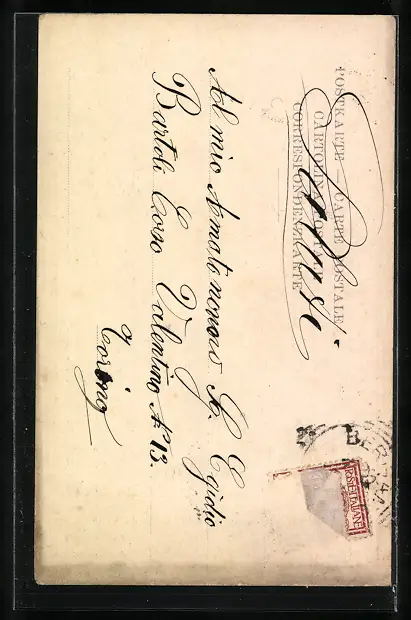 POSTKARTE — CARTE POSTALE
CARTOLINA POSTALE
CORRESPONDENZKARTE
Al mio Amato nonno S. Egidio
Bartoli Corso Valentino N° 13.
Torino
POSTE ITALIANE